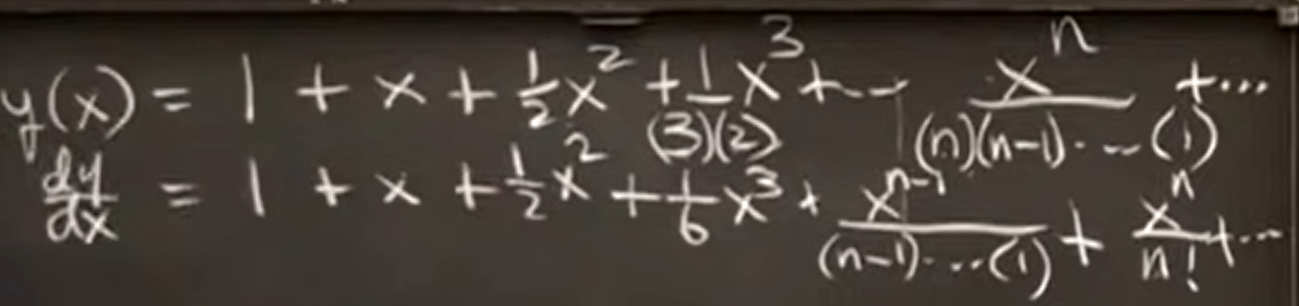 y(x) = 1 + x + ½x² + 1/(3)(2) x³ + ... xⁿ/(n)(n-1)...(1) + ...
dy/dx = 1 + x + ½x² + 1/6 x³ + xⁿ⁻¹/(n-1)...(1) + xⁿ/n! + ...